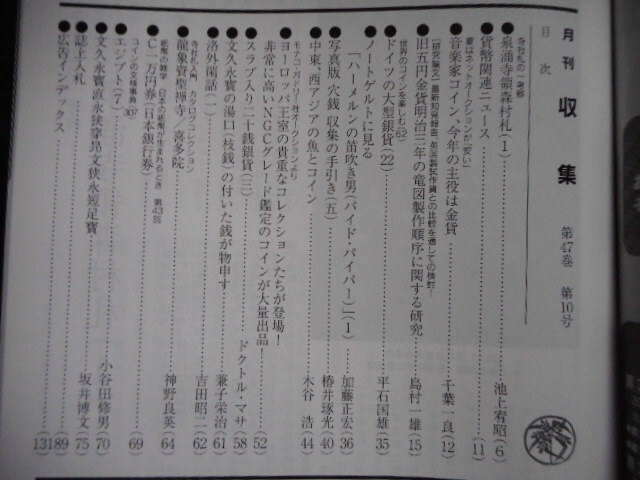 月刊 収集 第47巻 第10号
目次
寺社札の一考察
●泉涌寺領森村札(1)……池上宥昭(6)
●貨幣関連ニュース……(11)
夏はネットオークションが"安い"
●音楽家コイン、今年の主役は金貨……千葉一良(12)
【研究論文】最新知見報告 英國製試作貨との比較を通しての検討!
●旧五円金貨明治三年の竜図製作順序に関する研究……島村一雄(15)
世界のコインを楽しむ(52)
●ドイツの大型銀貨(22)……平石国雄(35)
●ノートゲルトに見る
「ハーメルンの笛吹き男(パイド・パイパー)」(1)……加藤正宏(36)
●写真版 穴銭 収集の手引き(五)……椿井琢光(40)
●中東、西アジアの魚とコイン……木谷 浩(44)
モナコ・ガドーリー社オークションより
●ヨーロッパ王室の貴重なコレクションたちが登場!
非常に高いNGCグレード鑑定のコインが大量出品!……(52)
●スラブ入り二十銭銀貨(三)……ドクトル・マサ(58)
●文久永寶の湯口(枝銭)の付いた銭が物申す……兼子栄治(61)
●洛外閑話(一)……吉田昭二(62)
寺社札入門 カタログ・コレクション
●龍象賓聖禅寺・喜多院……神野良英(64)
紙幣の雑学 日本の紙幣が生まれるとき 第43回
●C一万円券(日本銀行券)……
コインの文様事典(307)
●エジプト(7)……(69)
●文久永寶直永狭穿昴文狭永短足寶……小谷田修男(70)
●誌上入札……坂井博文(75)
●広告インデックス……(131)(89)